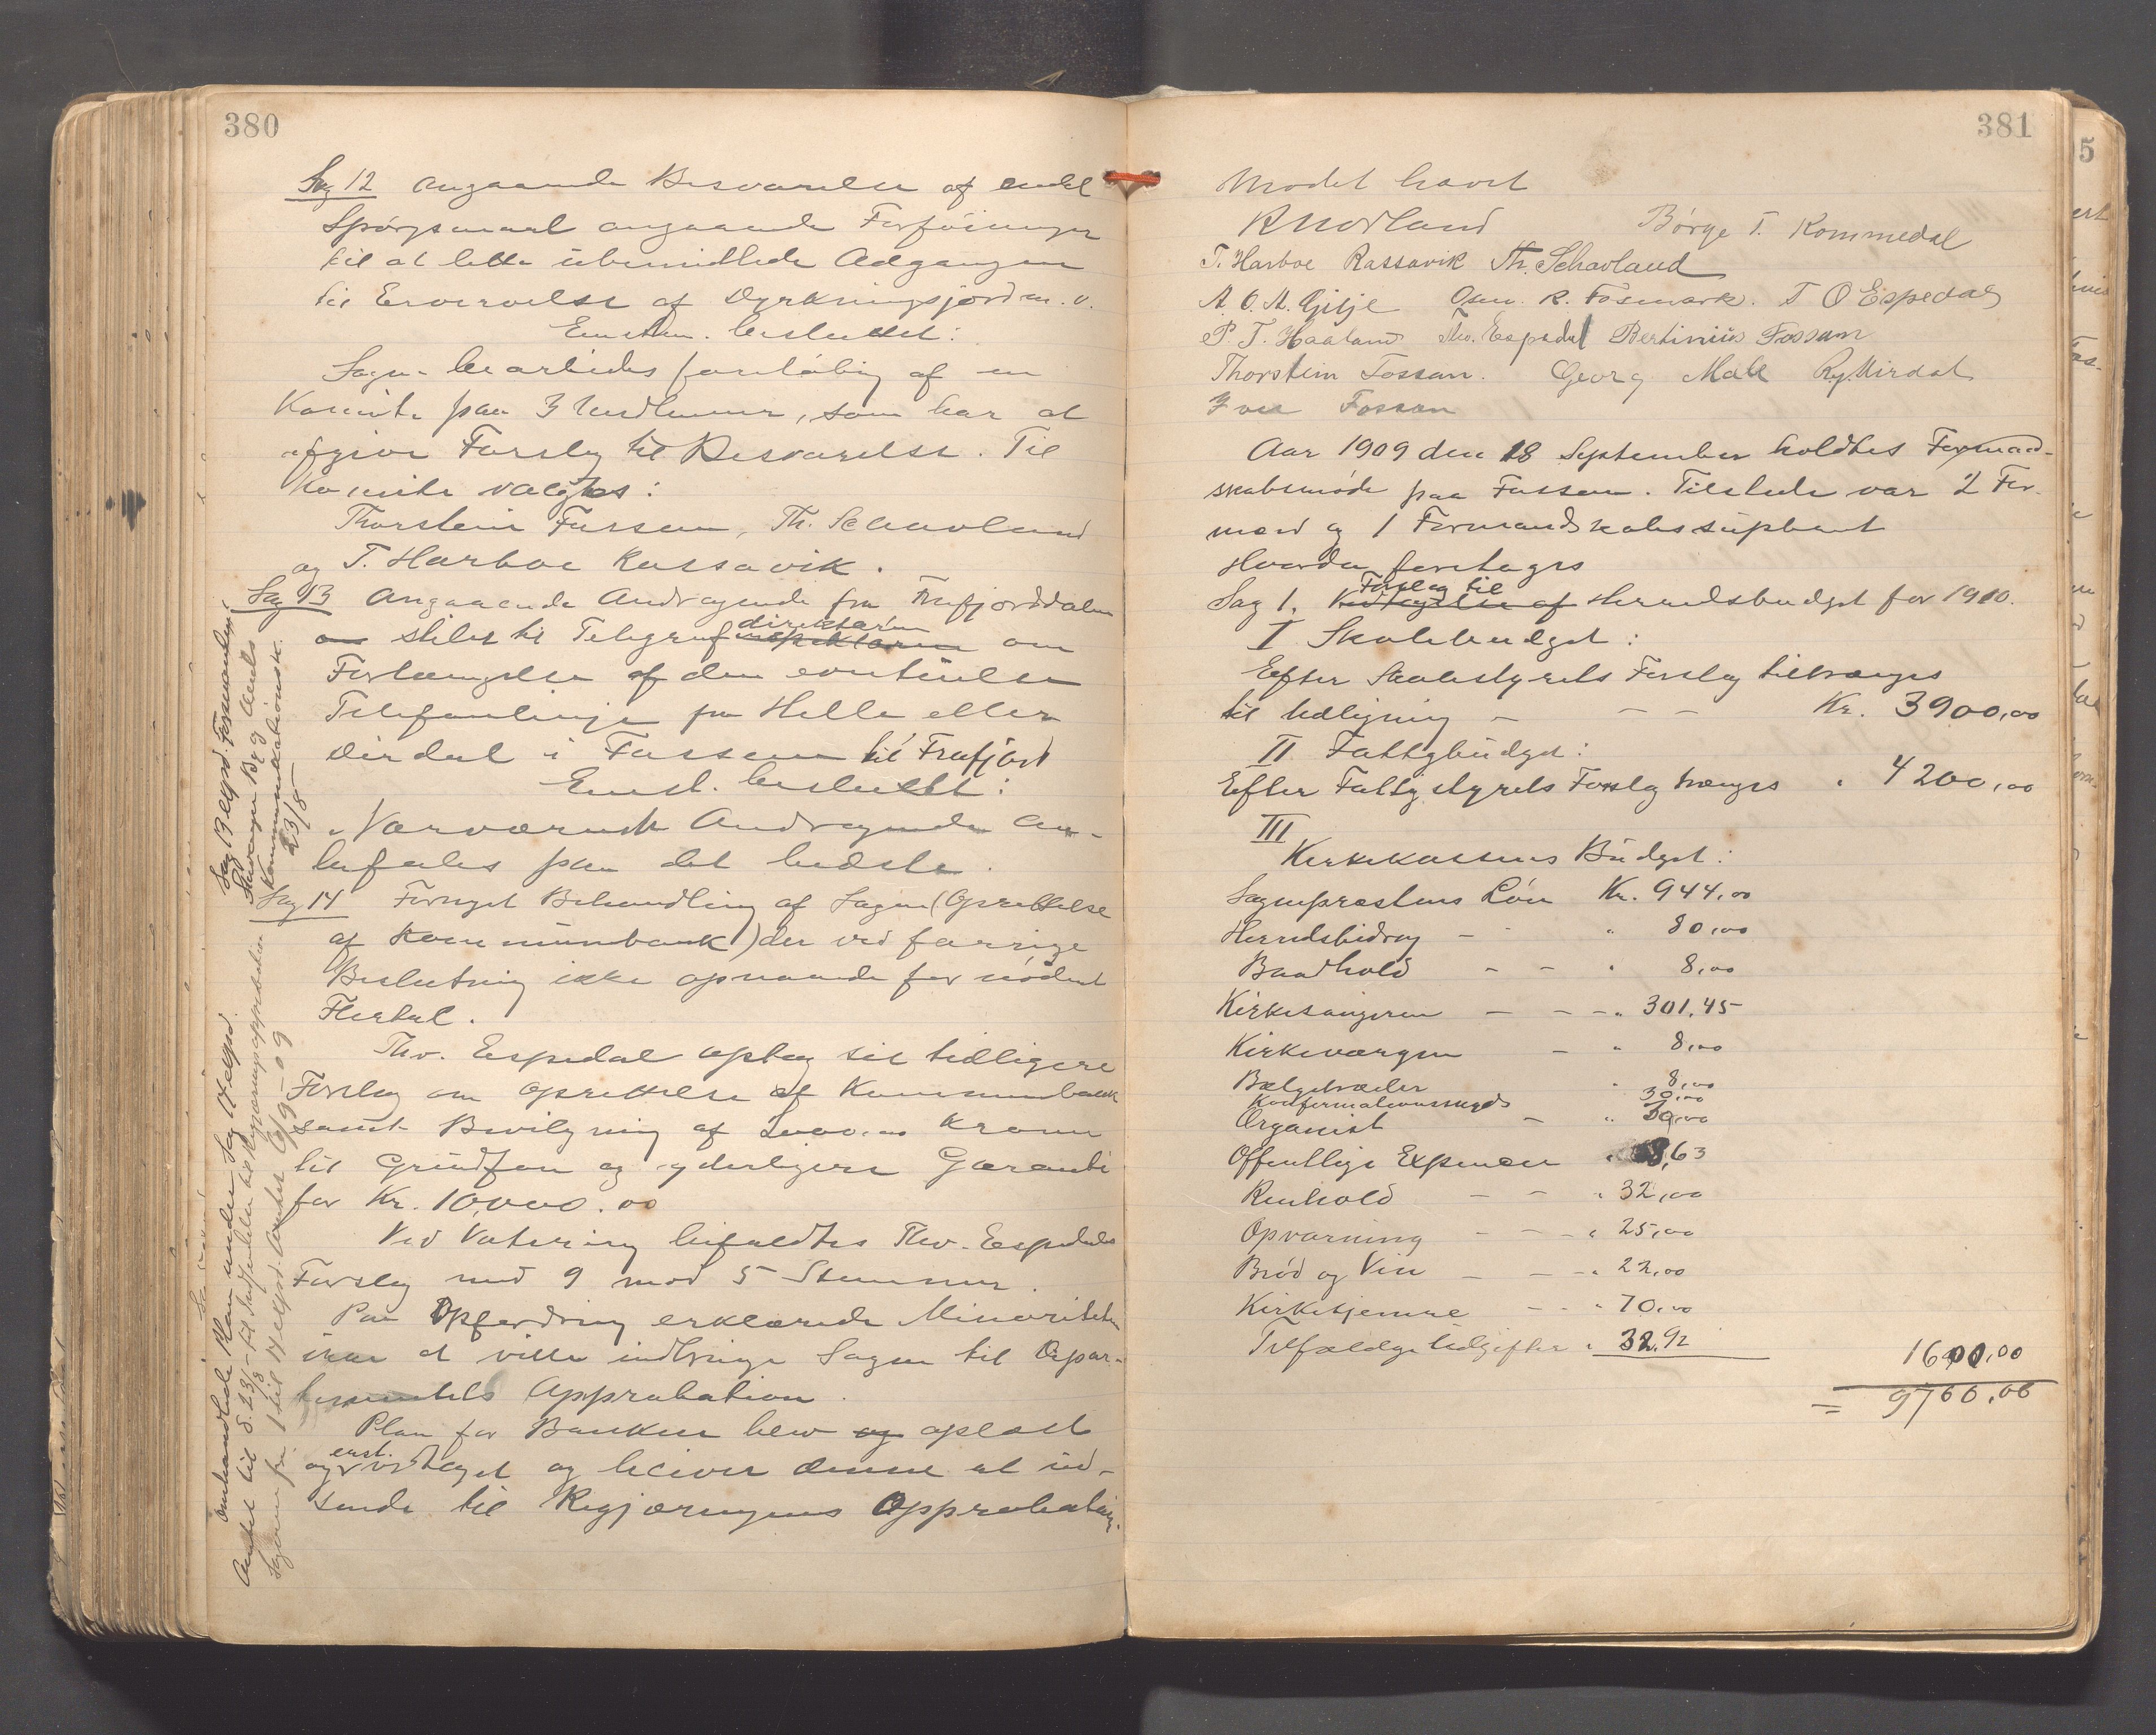 380
Sag 12 angaaende Besvarelse af endel
Spørgsmaal angaaende Forføininger
til at lette ubemidlede Adgangen
til Ervervelse af Dyrkningsjord m.v.
Enstem. besluttet:
Sagen bearbeides foreløbig af en
Komite paa 3 Medlemmer, som har at
afgive Forslag til Besvarelse. Til
Komite valgtes:
Thorstein Fossan, Th. Schavland
og T. Harboe Rassavik.
Sag 13 Angaaende Andragende fra Frafjorddalen
stilet til Telegrafinspektøren direktøren om
Forlængelse af den eventuelle
Telefonlinje fra Helle eller
Dirdal i Fossan til Frafjord
Enst. besluttet:
Nærværende Andragende an-
befales paa det bedste.
Sag 14 Fornyet Behandling af Sagen (Oprettelse
af Kommunebank) der ved forrige
Beslutning ikke opnaaede fornødent
Flertal.
Thv. Espedal optog sit tidligere
Forslag om Oprettelse af Kommunebank
samt Bevilgning af 2000.00 Kroner
til Grundfon og yderligere Garanti
for Kr. 10,000.00
Ved Votering bifaldtes Thv. Espedals
Forslag med 9 mod 5 Stemmer.
Paa Opfordring erklærede Minoriteten
ikke at ville indbringe Sagen til Depar-
tementets Approbation.
Plan for Banken blev og oplæst
og enst. vedtaget og bliver denne at ind-
sende til Regjæringens Approbation.
Sag 13 expd. Formanden i
Stavanger By og Amts
Kommunikationsk.
23/8
omhandlede Plan under Sag 14 expd.
Amtet til 23/8 - til
Sagerne fra 1 til 14 expd. Amtet 6/9-09
381
Mødet hævet
R Norland Børge T. Kommedal
T. Harboe Rassavik Th. Schavland
A. O. A. Gilje Osm. R. Fosmark. T O Espedal
P. T. Haaland Thv. Espedal Bertinius Fossan
Thorstein Fossan. Georg Mæle R. J. Dirdal
Iver Fossan
Aar 1909 den 18 September holdtes Formand-
skabsmøde paa Fossan. Tilstede var 2 For-
mænd og 1 Formandskabssuplent
Hvorda foretoges
Sag 1. Vedtagelse af Forslag til Herredsbudget for 1910.
I Skolebudget:
Efter Skolestyrets Forslag tiltrænges
til Udligning — — — Kr. 3900,00
II Fattigbudget:
Efter Fattigstyrets Forslag trænges " 4200,00
III
Kirkekassens Budget:
Sognepræstens Løn Kr. 944,00
Herredsbidrag — - " 80,00
Baadhold — — " 8,00
Kirkesangeren — — — " 301,45
Kirkeværgen — " 8,00
Bælgetræder " 8,00
Konfirmationssagds 30,00
Organist — " 30,00
Offentlige Expenser " 8,63
Renhold — — " 32,00
Opvarmning — — — " 25,00
Brød og Vin — — — " 22,00
Kirketjenere — — " 70,00
Tilfældige Udgifter " 32.92 1600,00
= 9700,00